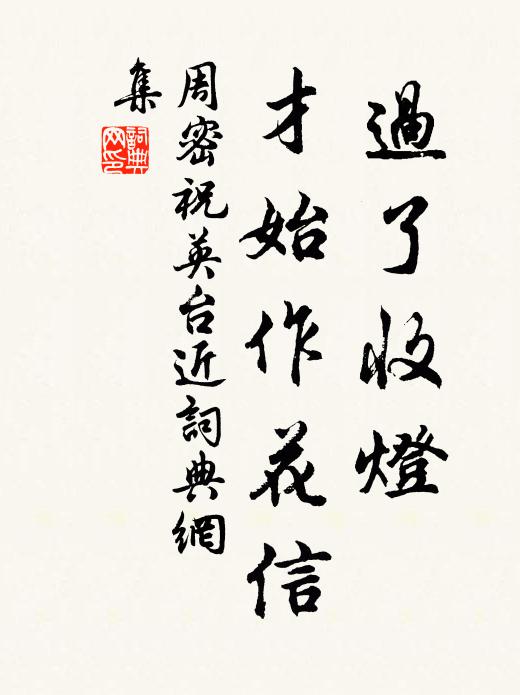 過了收燈
才始作花信
周密祝英台近詞典網
集
詞典
网印